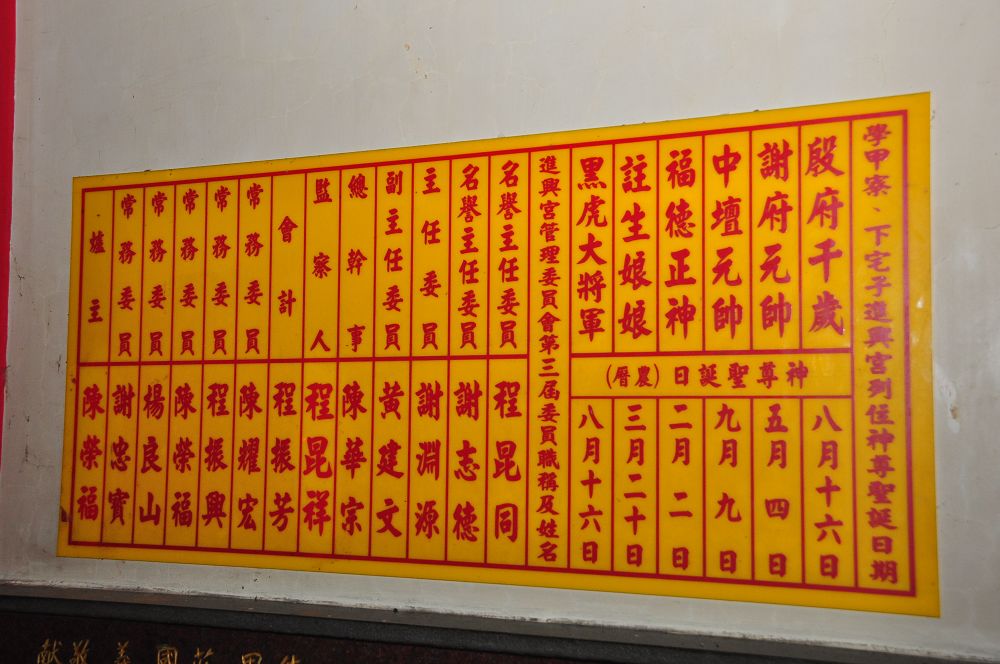 學甲寮、下宅子進興宮列位神尊聖誕日期
殷府千歲
謝府元帥
中壇元帥
福德正神
註生娘娘
黑虎大將軍
神尊聖誕日（農曆）
八月十六日
五月四日
九月九日
二月二日
三月二十日
八月十六日
進興宮管理委員會第三屆委員職稱及姓名
名譽主任委員 程昆同
名譽主任委員 謝志德
主任委員 謝淵源
副主任委員 黃建文
總幹事 陳華宗
監察人 程昆祥
會計 程振芳
常務委員 陳耀宏
常務委員 程振興
常務委員 陳榮福
常務委員 楊良山
常務委員 謝忠寶
爐主 陳榮福